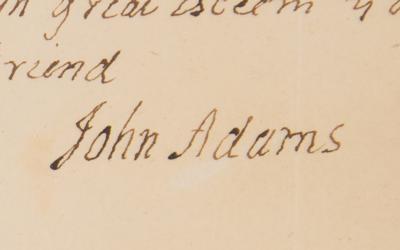 great esteem
riend
John Adams